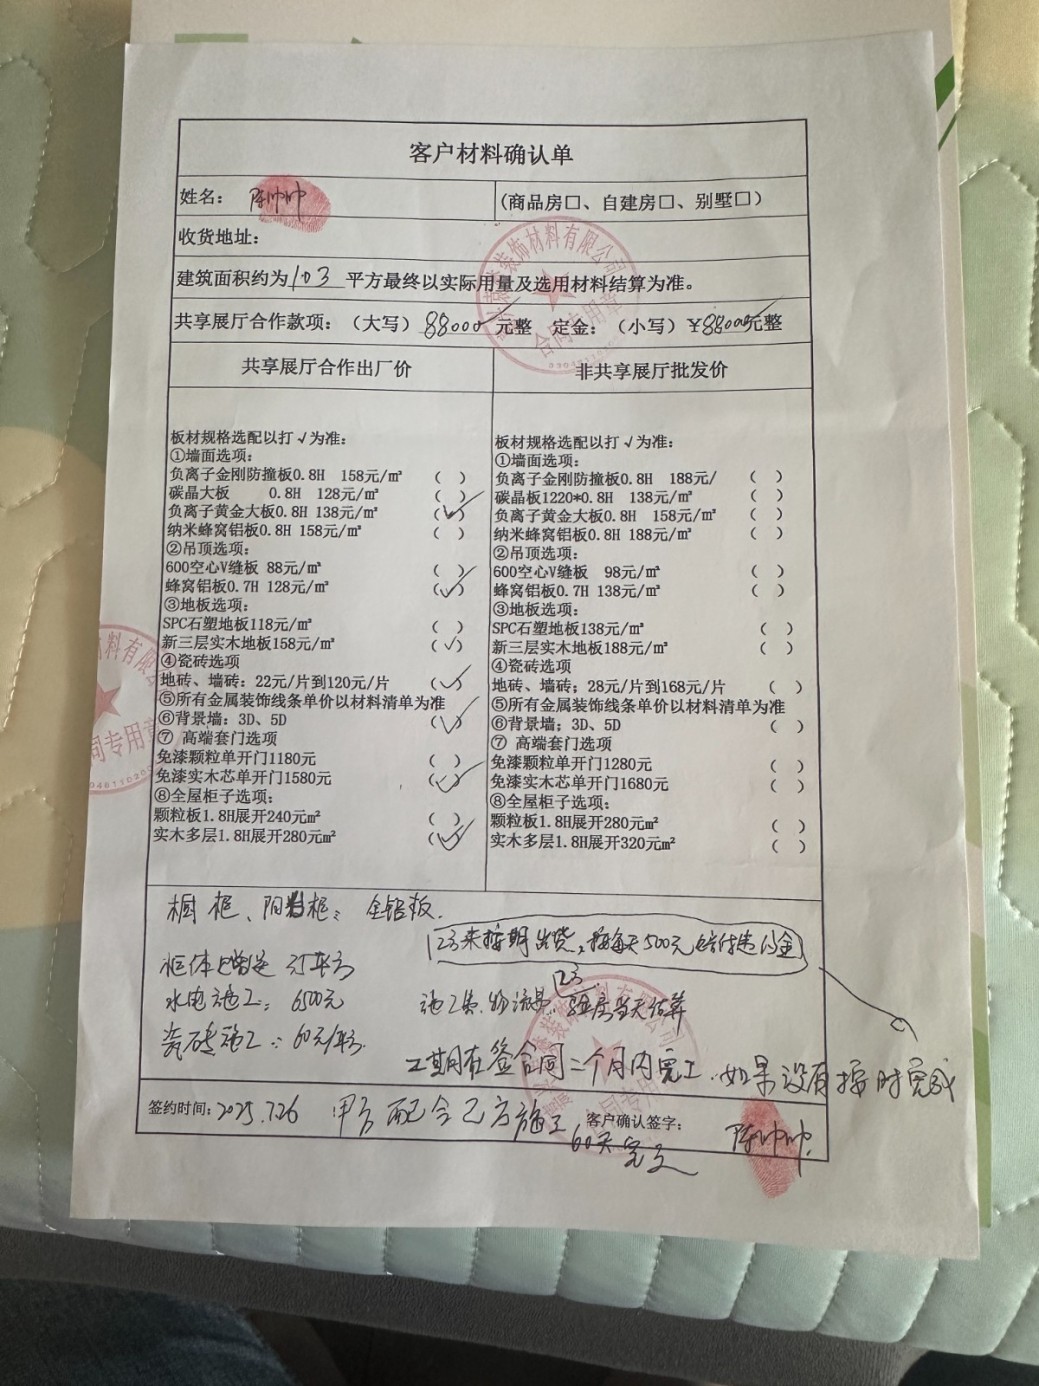 客户材料确认单
姓名： 陈帅帅 (商品房□、自建房□、别墅□)
收货地址：
建筑面积约为103平方最终以实际用量及选用材料结算为准。
共享展厅合作款项：（大写）88000元整 定金：（小写）¥88000元整
共享展厅合作出厂价
非共享展厅批发价
板材规格选配以打√为准：
①墙面选项：
负离子金刚防撞板0.8H 158元/m² ( )
碳晶大板 0.8H 128元/m² ( )
负离子黄金大板0.8H 138元/m² (√)
纳米蜂窝铝板0.8H 158元/m² ( )
②吊顶选项：
600空心V缝板 88元/m² ( )
蜂窝铝板0.7H 128元/m² (√)
③地板选项：
SPC石塑地板118元/m² ( )
新三层实木地板158元/m² (√)
④瓷砖选项
地砖、墙砖：22元/片到120元/片 (√)
⑤所有金属装饰线条单价以材料清单为准
⑥背景墙：3D、5D (√)
⑦ 高端套门选项
免漆颗粒单开门1180元 ( )
免漆实木芯单开门1580元 (√)
⑧全屋柜子选项：
颗粒板1.8H展开240元m² ( )
实木多层1.8H展开280元m² (√)
板材规格选配以打√为准：
①墙面选项：
负离子金刚防撞板0.8H 188元/ ( )
碳晶板1220*0.8H 138元/m² ( )
负离子黄金大板0.8H 158元/m² ( )
纳米蜂窝铝板0.8H 188元/m² ( )
②吊顶选项：
600空心V缝板 98元/m² ( )
蜂窝铝板0.7H 138元/m² ( )
③地板选项：
SPC石塑地板138元/m² ( )
新三层实木地板188元/m² ( )
④瓷砖选项
地砖、墙砖；28元/片到168元/片 ( )
⑤所有金属装饰线条单价以材料清单为准
⑥背景墙；3D、5D ( )
⑦ 高端套门选项
免漆颗粒单开门1280元 ( )
免漆实木芯单开门1680元 ( )
⑧全屋柜子选项：
颗粒板1.8H展开280元m² ( )
实木多层1.8H展开320元m² ( )
橱柜、阳台柜： 全铝板.
未按期出货，按每天500元赔付违约金
柜体赠送 平方
水电施工：6500元
施工费.物流费. 验房当天结算
瓷砖施工：60元/平方.
工期在签合同二个月内完工.如果没有按时完成
签约时间：2025.7.26 甲方配合乙方施工60天完工
客户确认签字： 陈帅帅.
装饰材料有限公司
合同专用章
材料有限
同专用章